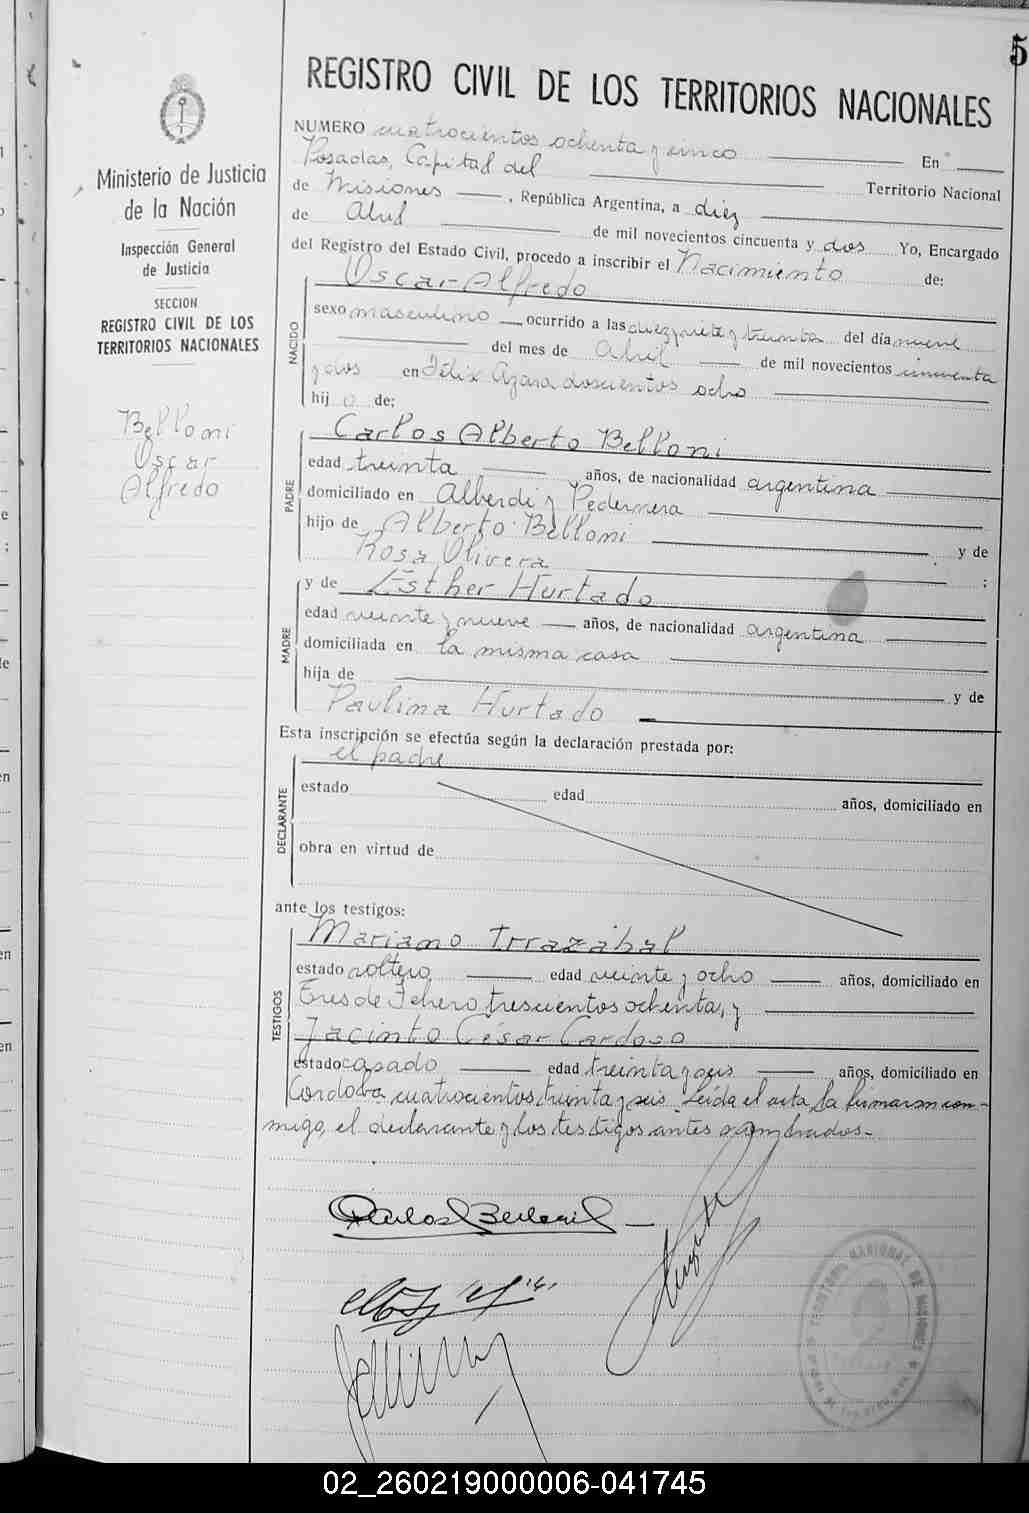 5
REGISTRO CIVIL DE LOS TERRITORIOS NACIONALES
Ministerio de Justicia
de la Nación
Inspección General
de Justicia
SECCION
REGISTRO CIVIL DE LOS
TERRITORIOS NACIONALES
Belloni
Oscar
Alfredo
NUMERO cuatrocientos ochenta y cinco En
Posadas, Capital del Territorio Nacional
de Misiones, República Argentina, a diez
de Abril de mil novecientos cincuenta y dos Yo, Encargado
del Registro del Estado Civil, procedo a inscribir el Nacimiento de:
Oscar Alfredo
NACIDO
sexo masculino ocurrido a las diez y siete y treinta del día nueve
del mes de Abril de mil novecientos cincuenta
y dos en Félix Azara doscientos ocho
hijo de:
Carlos Alberto Belloni
PADRE
edad treinta años, de nacionalidad argentina
domiciliado en Alberdi y Pedernera
hijo de Alberto Belloni y de
Rosa Olivera ;
y de Esther Hurtado
MADRE
edad veinte y nueve años, de nacionalidad argentina
domiciliada en la misma casa
hija de y de
Paulina Hurtado
Esta inscripción se efectúa según la declaración prestada por:
el padre
DECLARANTE
estado edad años, domiciliado en
obra en virtud de
ante los testigos:
Mariano Irrazábal
TESTIGOS
estado soltero edad veinte y ocho años, domiciliado en
Tres de Febrero trescientos ochenta, y
Jacinto César Cardozo
estado casado edad treinta y seis años, domiciliado en
Cordoba cuatrocientos treinta y seis. Leída el acta la firmaron con-
migo, el declarante y los testigos antes nombrados.-
TERRITORIO NACIONAL DE MISIONES
02_260219000006-041745